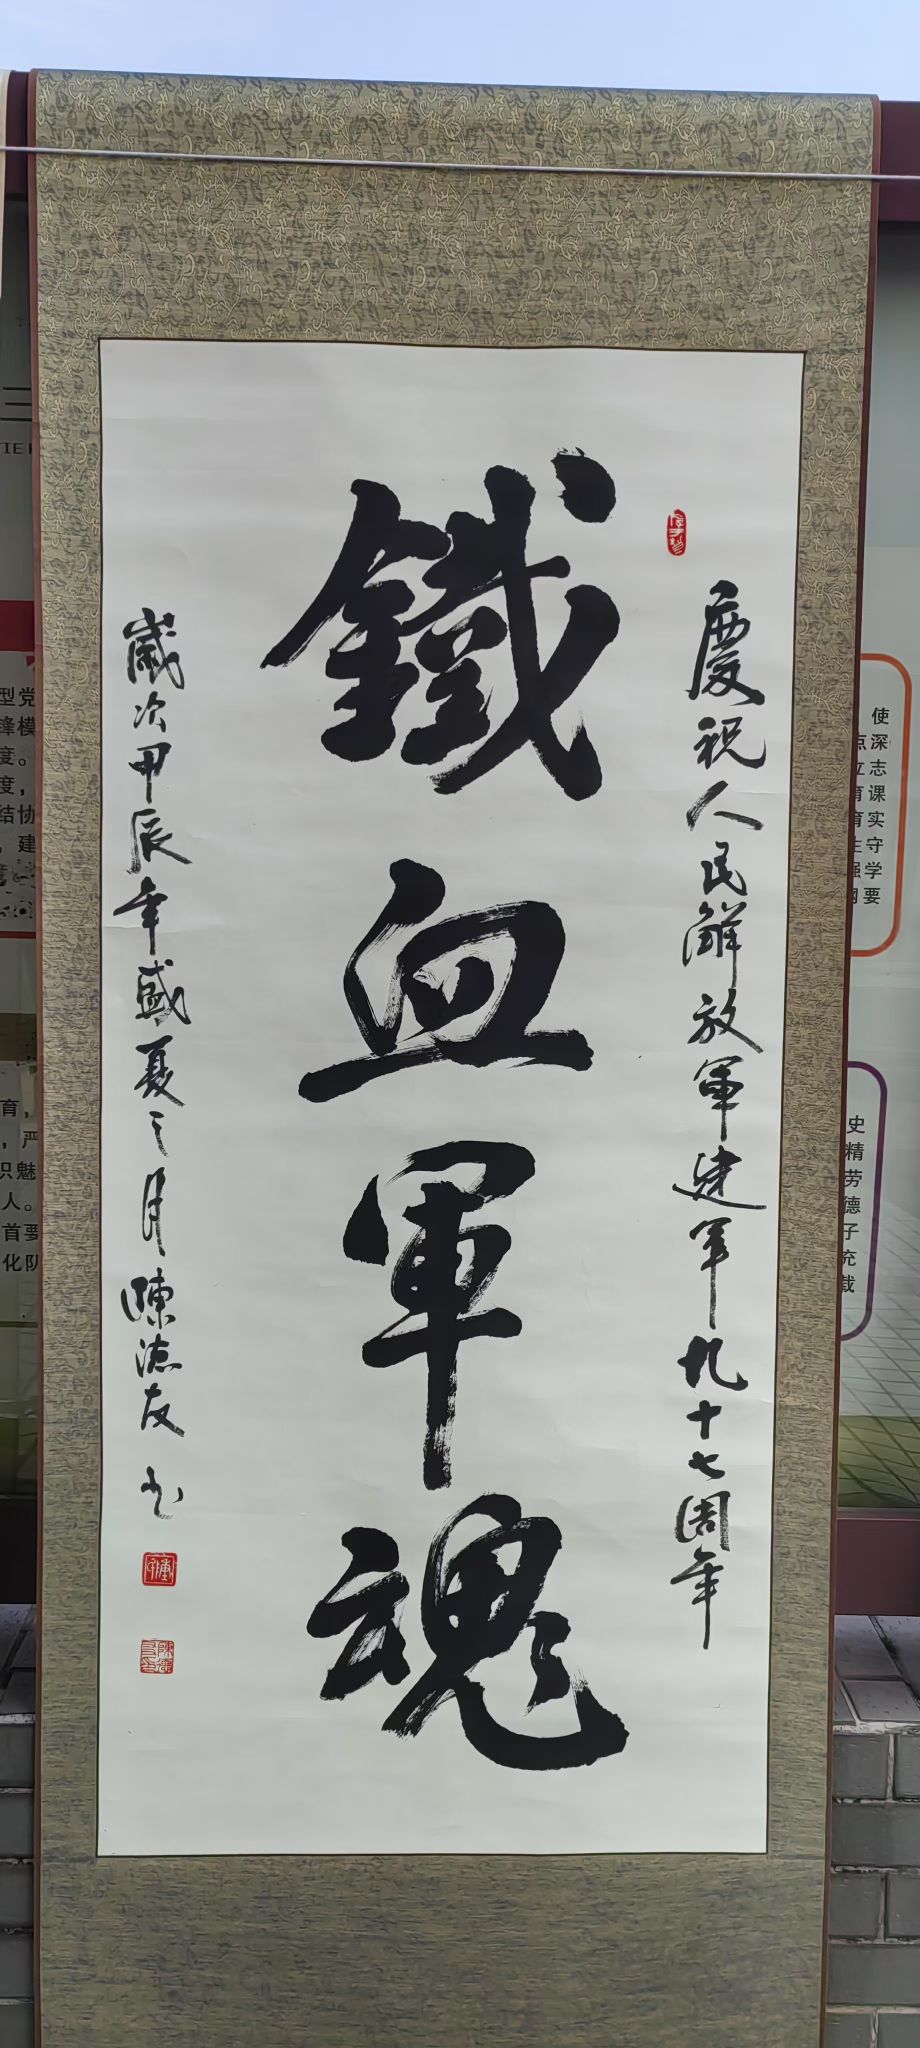 慶祝人民解放軍建军九十七周年
鐵血軍魂
歲次甲辰年盛夏之月陳德友书
使
点深
立志
育课
育实
生守
强学
要
史
精
劳
德
子
充
载
三
型党
锋模
度。
度，
结协
，建
育，
，严
识魅
人。
首要
化队